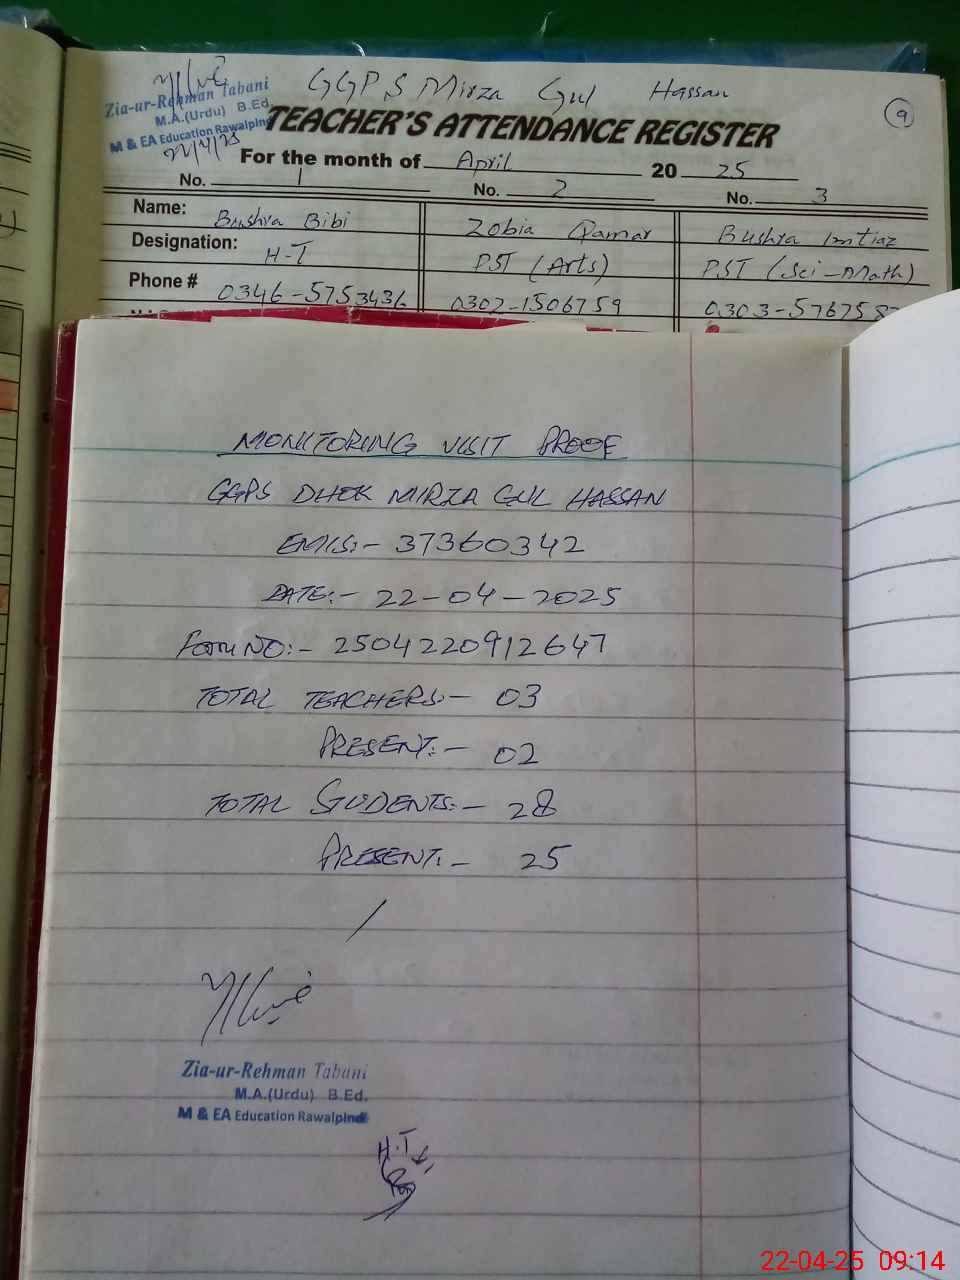 GGPS Mirza Gul Hassan
9
Zia-ur-Rehman Tabani
M.A.(Urdu) B.Ed.
M & EA Education Rawalpindi
22/4/25
TEACHER'S ATTENDANCE REGISTER
For the month of April 20 25
No. 1 No. 2 No. 3
Name: Bushra Bibi Zobia Qamar Bushra Imtiaz
Designation: H-T PST (Arts) PST (Sci-Math)
Phone # 0346-5753436 0302-1506759 0303-576758
MONITORING VISIT PROOF
GGPS DHOK MIRZA GUL HASSAN
EMIS:- 37360342
DATE:- 22-04-2025
Form NO:- 2504220912647
TOTAL TEACHERS:- 03
PRESENT:- 02
TOTAL STUDENTS:- 28
PRESENT:- 25
Zia-ur-Rehman Tabani
M.A.(Urdu) B.Ed.
M & EA Education Rawalpindi
H.T
22-04-25 09:14